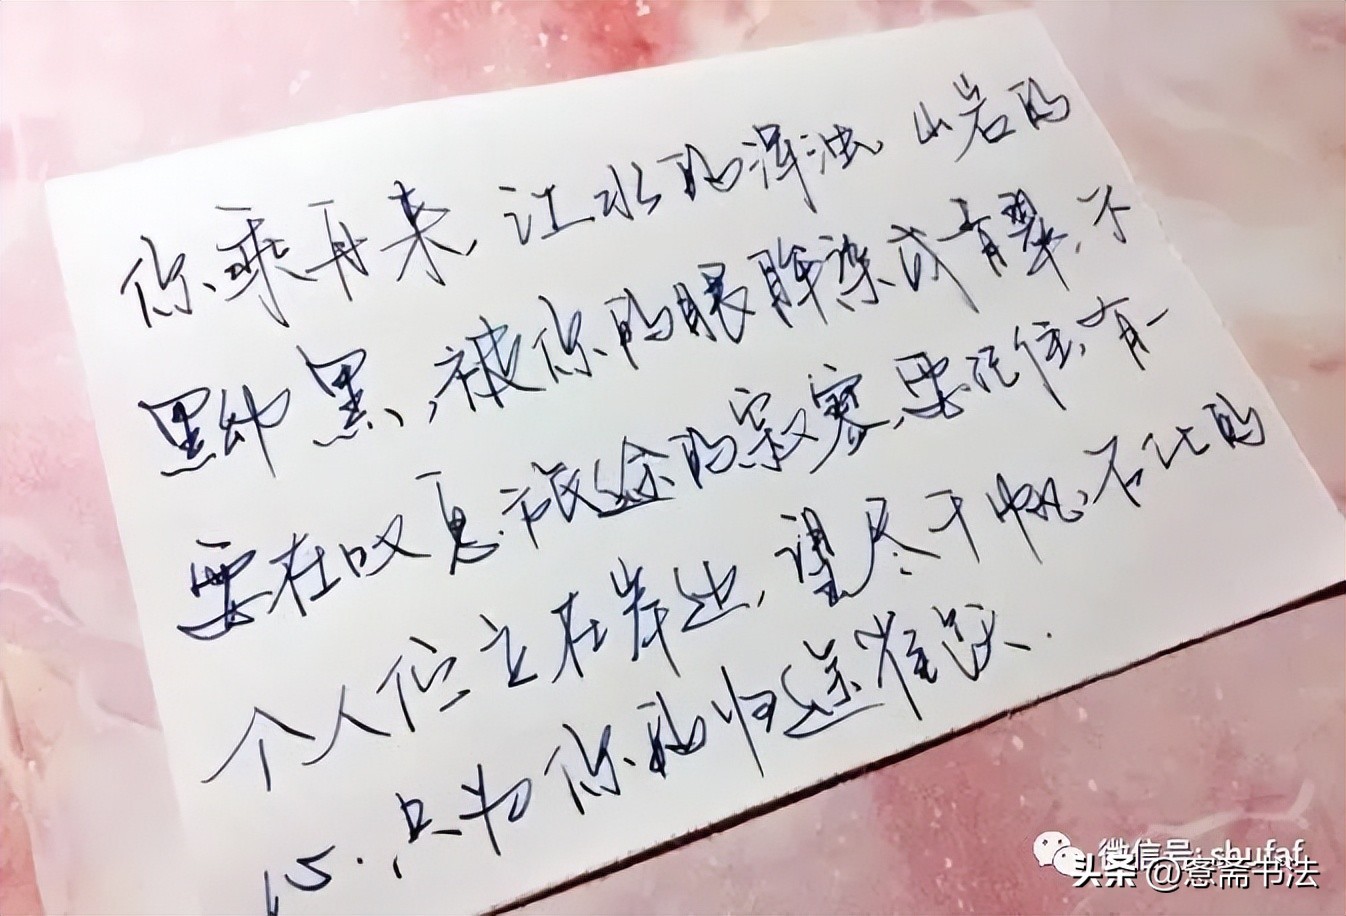 你乘舟来,江水的浑浊、山岩的
黝黑,被你的眼眸染成青翠,不
要在叹息旅途的寂寞,要记住,有一
个人伫立在岸边,望尽千帆,的
心.,只为你的归途雀跃.
微信号: shufaf
头条 @斋书法